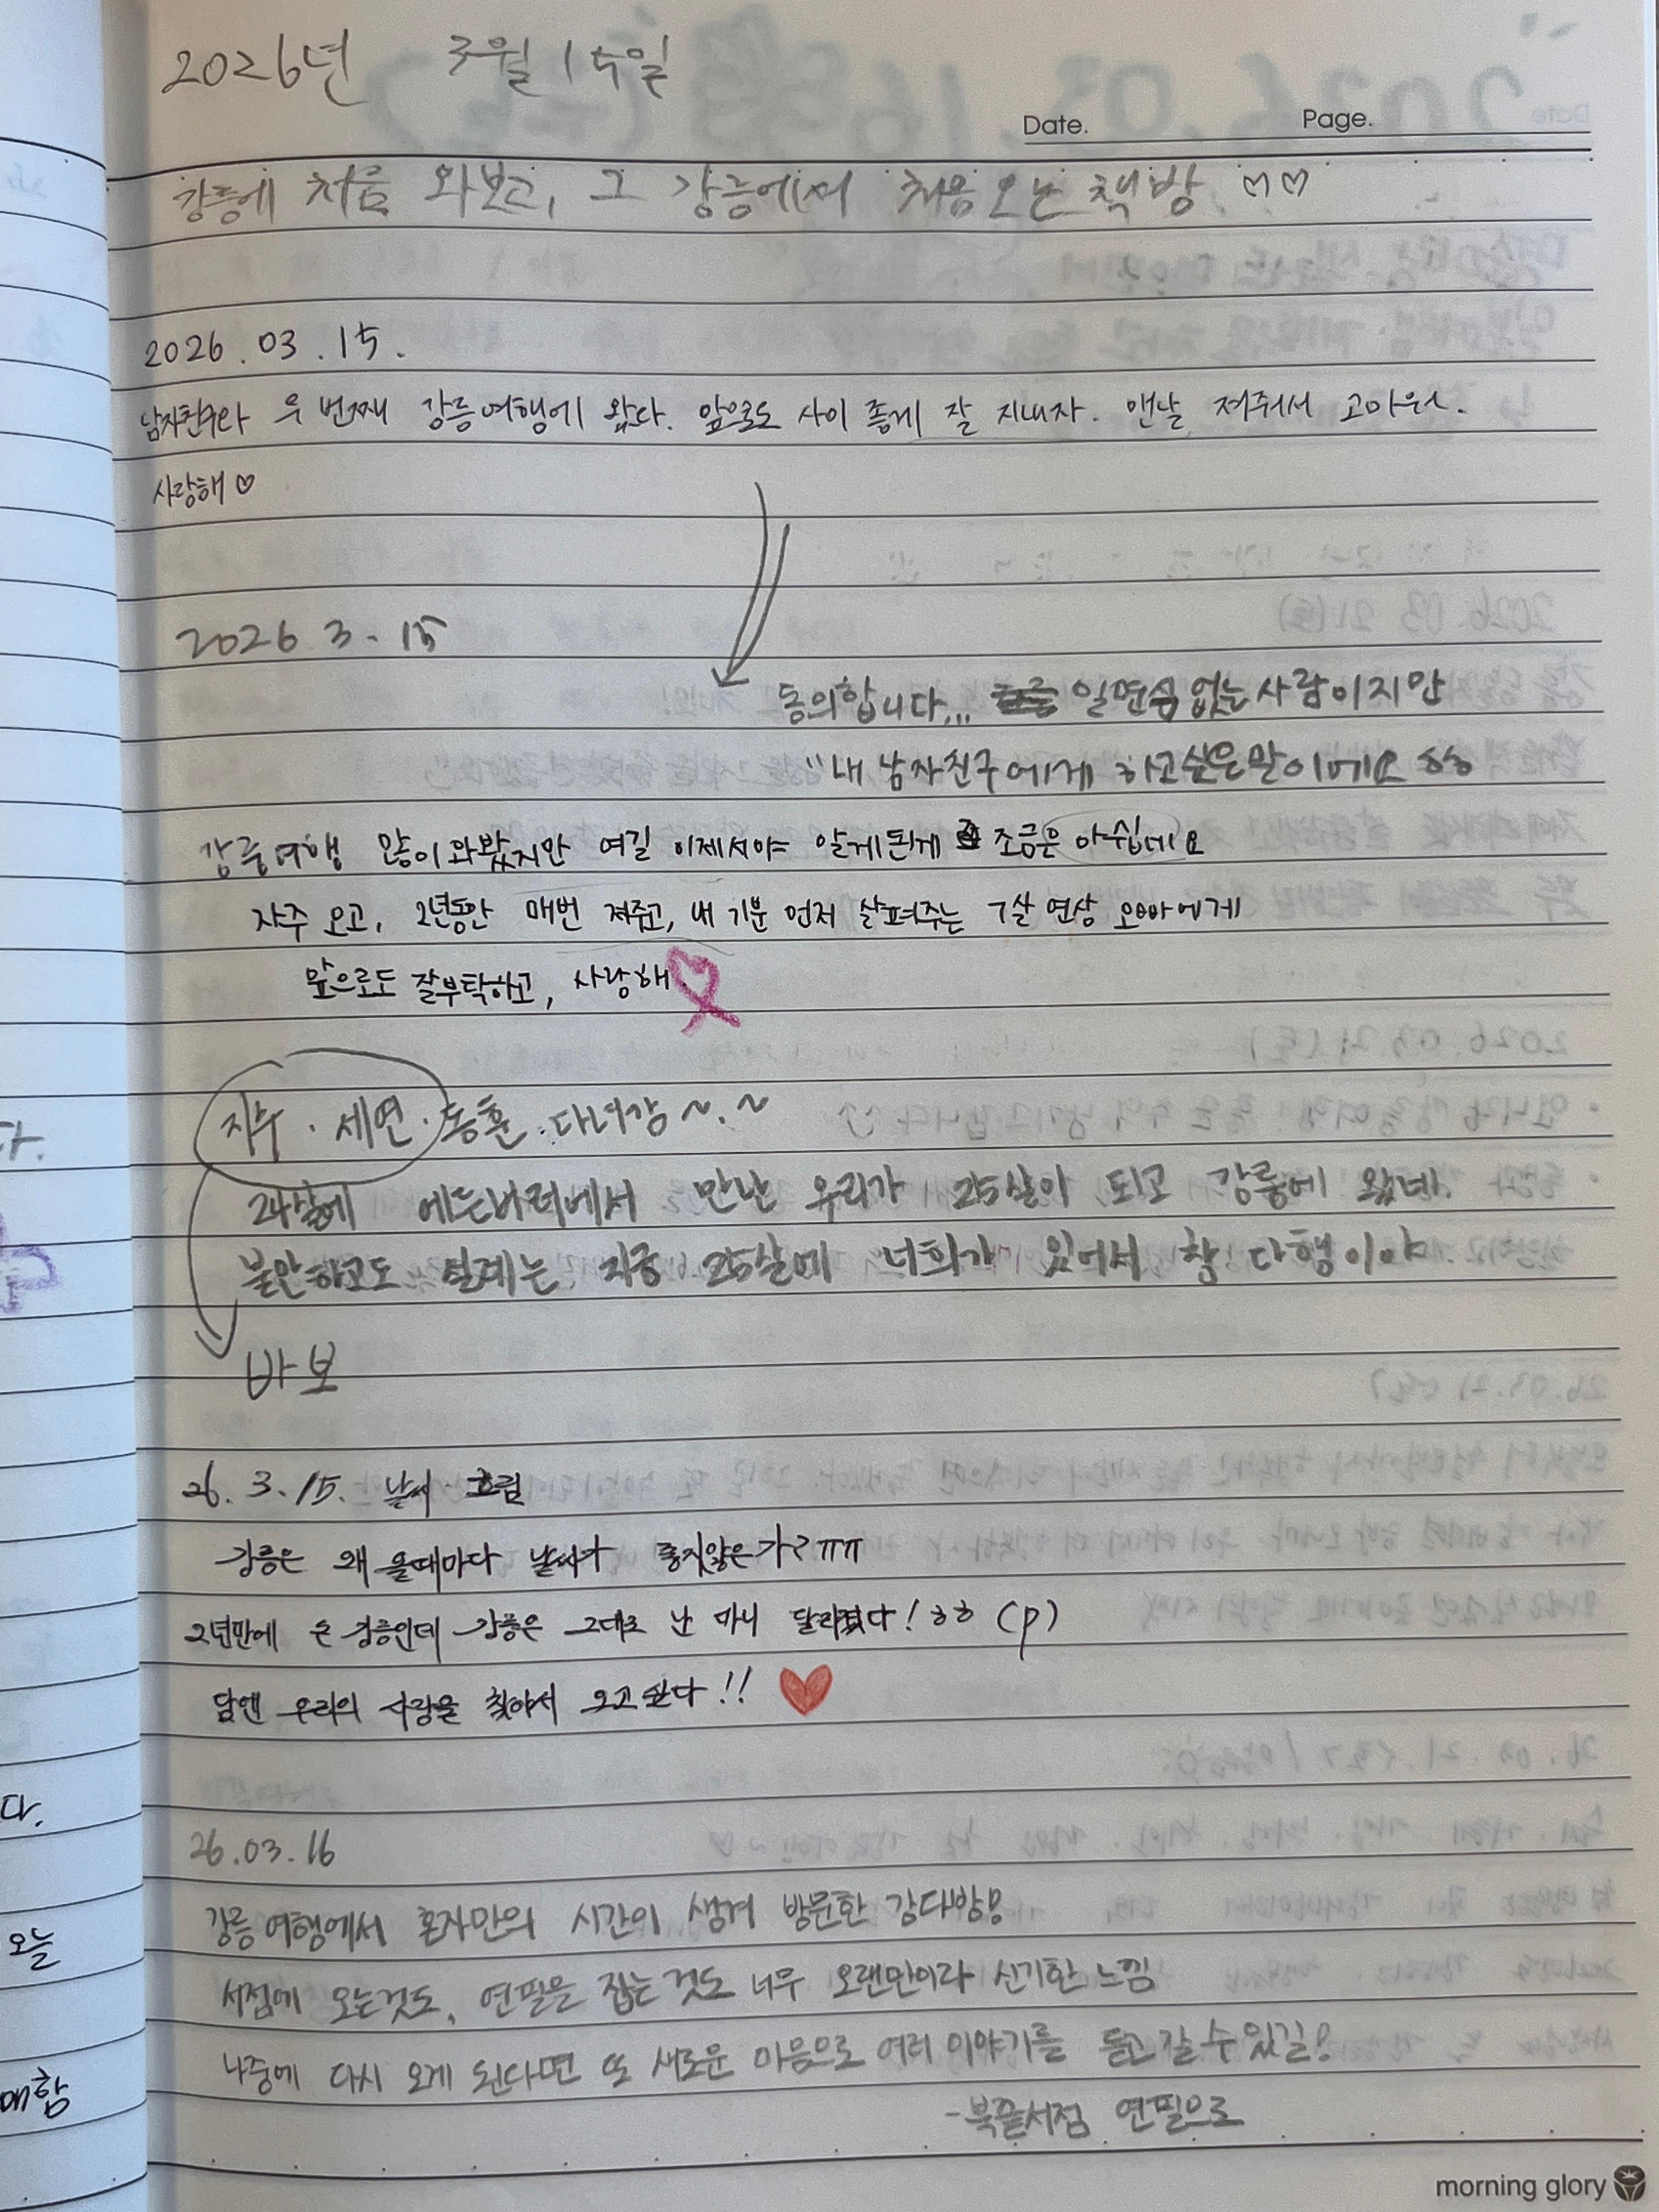 2026년 3월 15일
Date. Page.
강릉에 처음 와보고, 그 강릉에서 처음 오는 책방 ♡♡
2026.03.15.
남자친구와 두 번째 강릉여행에 왔다. 앞으로도 사이 좋게 잘 지내자. 맨날 져줘서 고마워.
사랑해♡
2026 3. 15
동의합니다... 일면식 없는 사람이지만
"내 남자친구에게 하고싶은말이에요 ㅎㅎ
강릉여행 많이 와봤지만 여길 이제서야 알게된게 조금은 아쉽네요
자주 오고, 2년동안 매번 져주고, 내 기분 먼저 살펴주는 7살 연상 오빠에게
앞으로도 잘부탁하고, 사랑해
지수·세연·동훈 다녀감~.~
24살에 에든버러에서 만난 우리가 25살이 되고 강릉에 왔네.
불안하고도 설레는 지금 25살에 너희가 있어서 참 다행이야
바보
26. 3. 15. 날씨 흐림
강릉은 왜 올때마다 날씨가 좋지않은가? ㅠㅠ
2년만에 온 강릉인데 강릉은 그대로 난 마니 달라졌다! ㅎㅎ (p)
담엔 우리의 사랑을 찾아서 오고싶다!!
26.03.16
강릉여행에서 혼자만의 시간이 생겨 방문한 강다방!
서점에 오는것도, 연필을 잡는것도 너무 오랜만이라 신기한 느낌
나중에 다시 오게 된다면 또 새로운 마음으로 여러 이야기를 들고갈 수 있길!
-북끝서점 연필으로
morning glory
다.
다.
오늘
매함